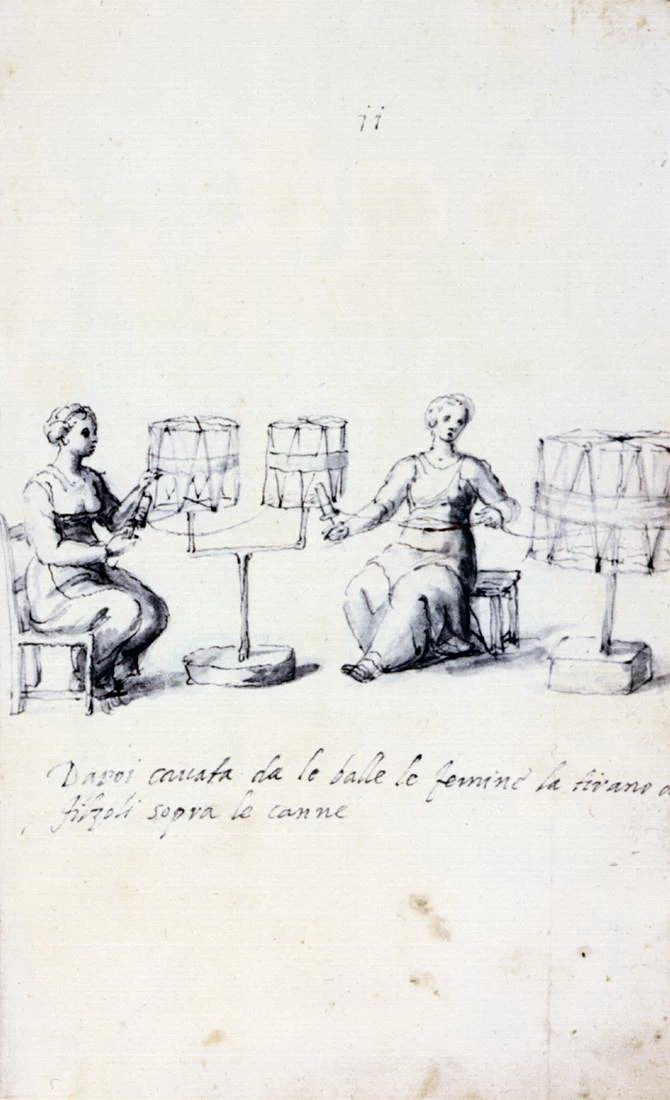 ii
Dapoi cavata da le balle le femine la tirano
sopra le canne